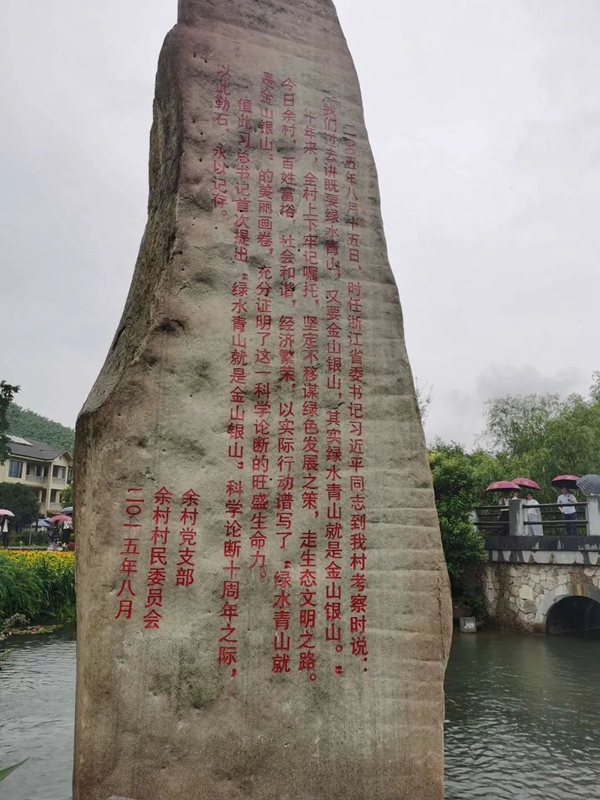 二〇〇五年八月十五日，时任浙江省委书记习近平同志到我村考察时说：
“我们过去讲既要绿水青山，又要金山银山，其实绿水青山就是金山银山。”
十年来，全村上下牢记嘱托，坚定不移谋绿色发展之策，走生态文明之路。
今日余村，百姓富裕，社会和谐，经济繁荣，以实际行动谱写了“绿水青山就
是金山银山”的美丽画卷，充分证明了这一科学论断的旺盛生命力。
值此习总书记首次提出“绿水青山就是金山银山”科学论断十周年之际，
以此勒石，永以记存。
余村党支部
余村村民委员会
二〇一五年八月